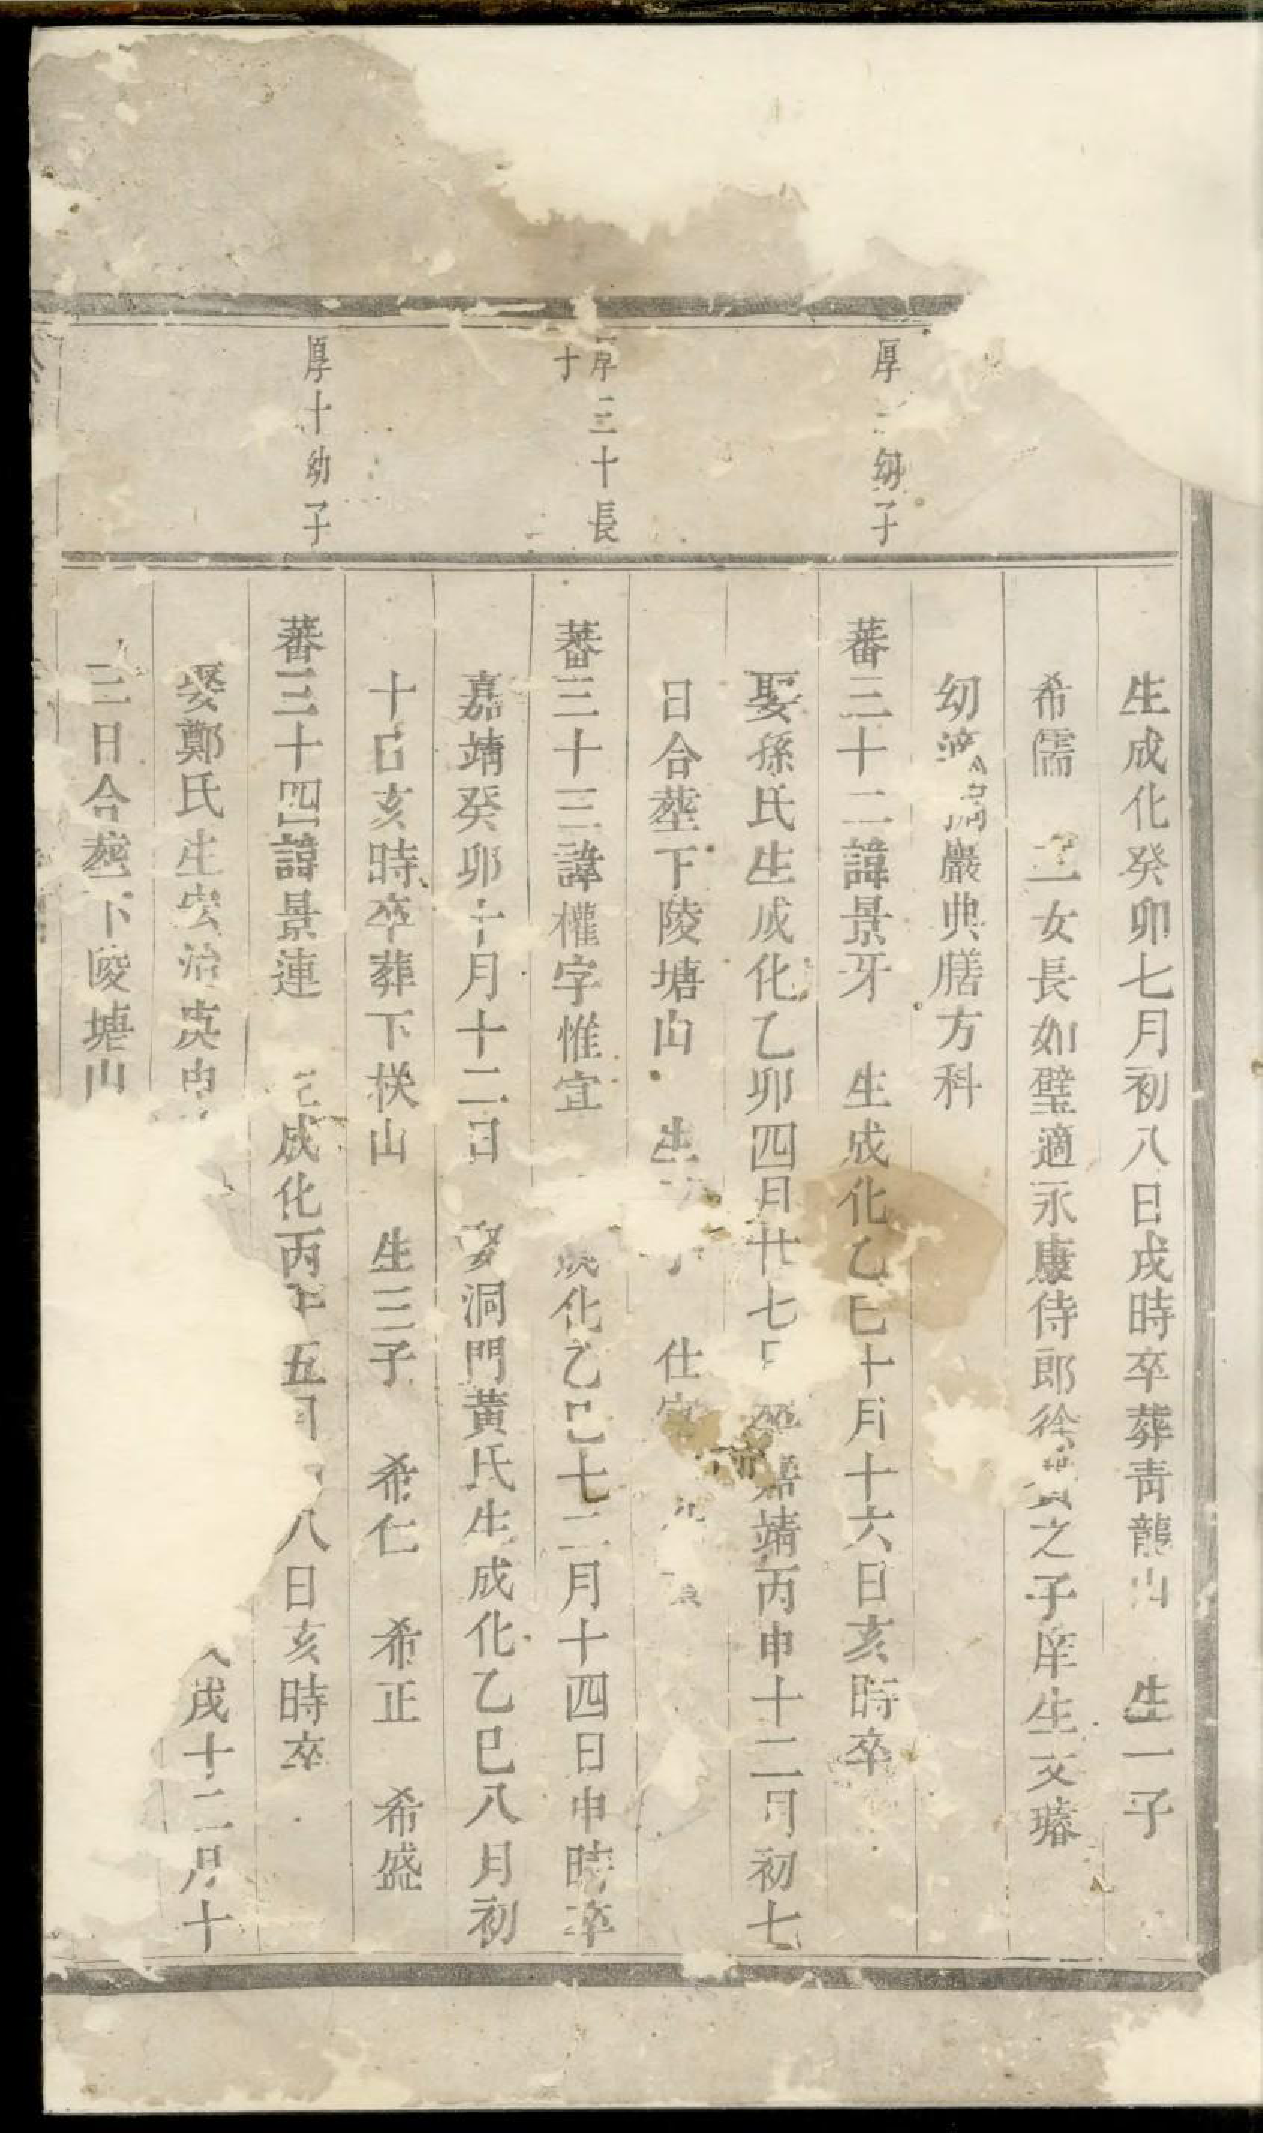 生成化癸卯七月初八日戌時卒葬青龍山　生一子
希儒　二女長如璧適永康侍郎徐之子庠生文璿
幼適嚴典膳方科
厚二幼子
蕃三十二諱景牙　生成化乙巳十月十六日亥時卒
娶孫氏生成化乙卯四月廿七日卒嘉靖丙申十二月初七
日合塟下陵塘山　生　仕
厚三十長子
蕃三十三諱權字惟宜　成化乙巳七二月十四日申時卒
嘉靖癸卯十月十二日　娶洞門黃氏生成化乙巳八月初
十巳亥時卒葬下栚山　生三子　希仁　希正　希盛
厚十幼子
蕃三十四諱景連　生成化丙午五月八日亥時卒
娶鄭氏生宏治庚申戌十二月十
二日合塟下陵塘山